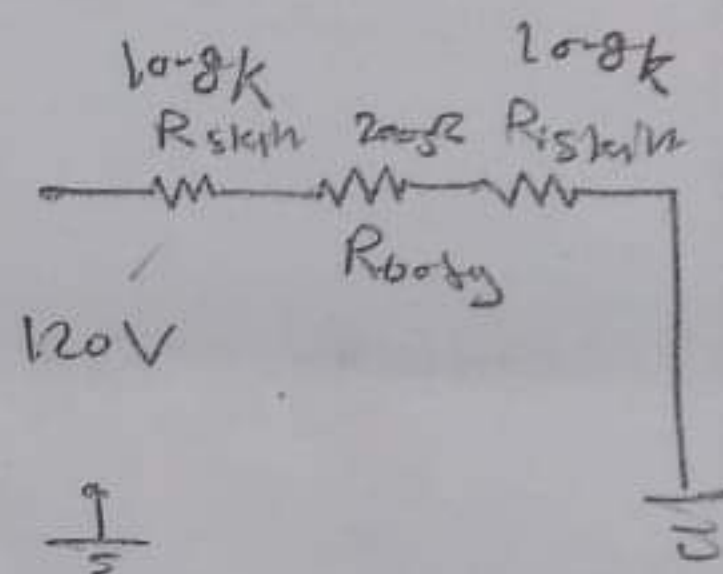 10-8k 10-8k
Rskin 200Ω Riskin
Rbody
120V